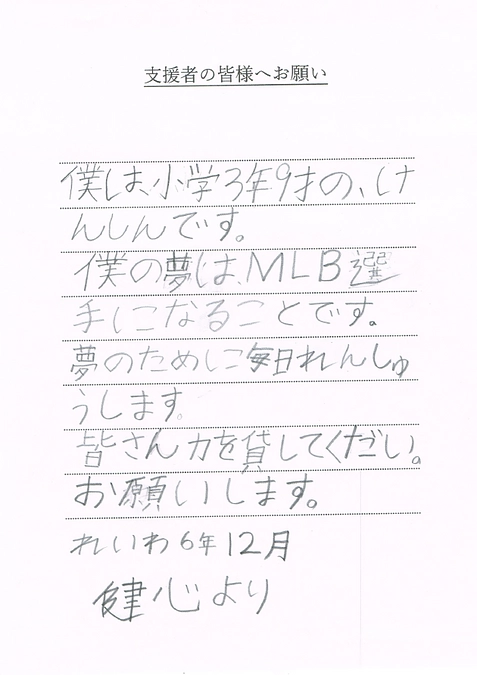 支援者の皆様へお願い
僕は、小学3年9才の、け
んしんです。
僕の夢は、MLB選
手になることです。
夢のために毎日れんしゅ
うします。
皆さん力を貸してください。
お願いします。
れいわ6年12月
健心より